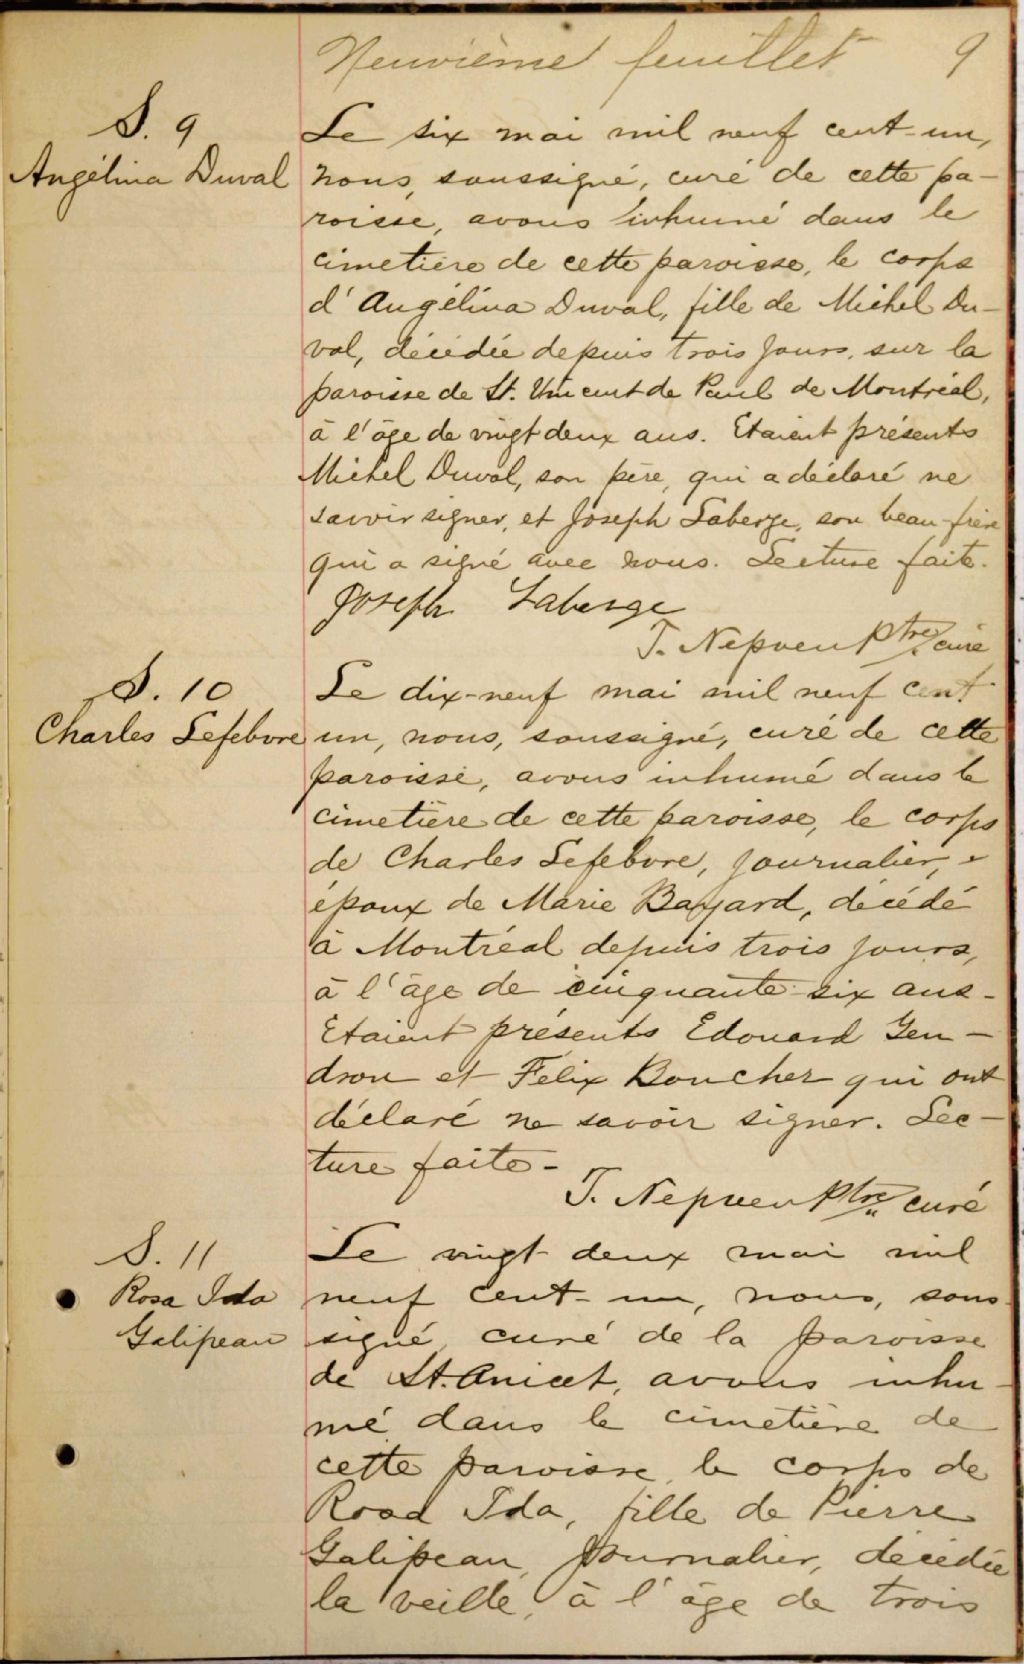 Neuvième feuillet 9
S. 9
Angélina Duval
Le six mai mil neuf cent-un,
nous, soussigné, curé de cette pa-
roisse, avons inhumé dans le
cimetière de cette paroisse, le corps
d'Angélina Duval, fille de Michel Du-
val, décédée depuis trois jours, sur la
paroisse de St. Vincent de Paul de Montréal,
à l'âge de vingt deux ans. Etaient présents
Michel Duval, son père, qui a déclaré ne
savoir signer, et Joseph Laberge, son beau-frère
qui a signé avec nous. Lecture faite.
Joseph Laberge
J. Nepveu Ptre, curé
S. 10
Charles Lefebvre
Le dix-neuf mai mil neuf cent
un, nous, soussigné, curé de cette
paroisse, avons inhumé dans le
cimetière de cette paroisse, le corps
de Charles Lefebvre, journalier,
époux de Marie Bayard, décédé
à Montréal depuis trois jours,
à l'âge de cinquante-six ans-
Etaient présents Edouard Gen-
dron et Félix Boucher qui ont
déclaré ne savoir signer. Lec-
ture faite-
J. Nepveu Ptre curé
S. 11
Rosa Ida
Galipeau
Le vingt deux mai mil
neuf cent-un, nous, sous-
signé, curé de la paroisse
de St. Anicet, avons inhu-
mé dans le cimetière de
cette paroisse, le corps de
Rosa Ida, fille de Pierre
Galipeau, journalier, décédée
la veille, à l'âge de trois